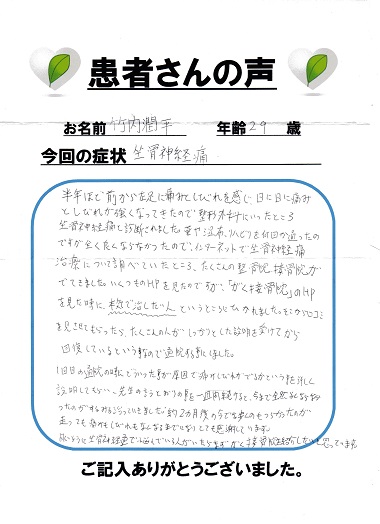 患者さんの声
お名前 竹内潤平 年齢 29 歳
今回の症状 坐骨神経痛
半年ほど前から左足に痛みとしびれを感じ日に日に痛み
としびれが強くなってきたので整形外科にいったところ
坐骨神経痛と診断されました。薬や湿布、リハビリを何回か通ったの
ですが全く良くならなかったので、インターネットで坐骨神経痛
治療について調べていたところ、たくさんの整骨院、接骨院が
でてきました。いくつものHPを見たのですが、「がく接骨院」のHP
を見た時に、本気で治したい人というところにひかれました。そこから口コミ
を見させてもらったら、たくさんの人がしっかりとした説明を受けてから
回復しているという事なので通院を決しました。
1回目の通院の時にどういった事が原因で痛けしびれがでるかという事を詳しく
説明してもらい、先生の言うとおりの事を一週間続けると、今まで全然良くならなか
ったのがするするになっていきました。約2か月後の今では楽しのもつらかったのが
走っても痛みもしびれもなくなるまでになりとても感謝しています。
同じように坐骨神経痛で悩んでいる人がいたらまずがく接骨院を紹介したいと思っています。
ご記入ありがとうございました。